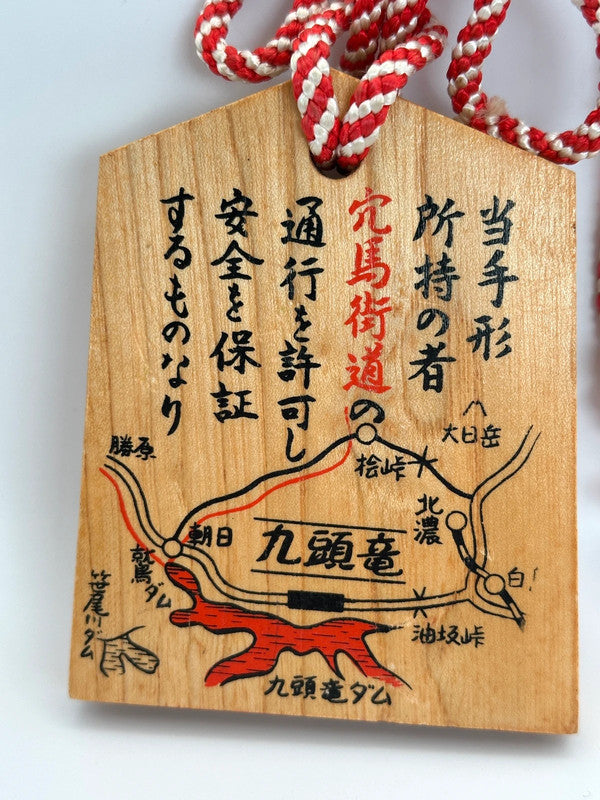 当手形
所持の者
穴馬街道の
通行を許可し
安全を保証
するものなり
大日岳
勝原
桧峠
北濃
朝日
九頭竜
白
鷲ダム
笹尾川ダム
油坂峠
九頭竜ダム